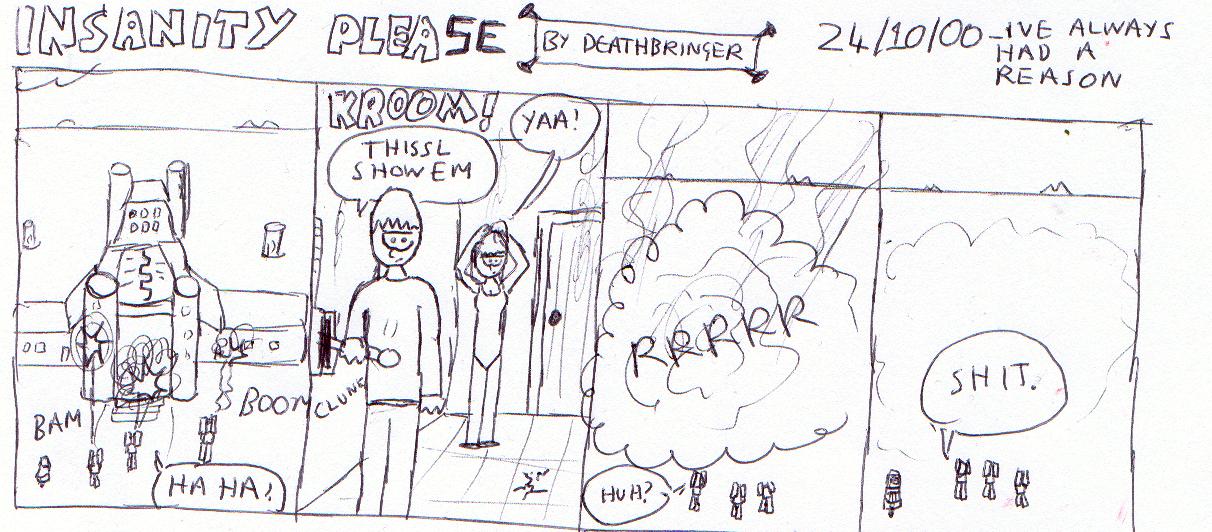 INSANITY PLEASE
BY DEATHBRINGER
24/10/00 - IVE ALWAYS
HAD A
REASON
BAM
BOOM
HA HA!
KROOM!
THISSL
SHOWEM
YAA!
CLUNK
RRRRR
HUH?
SHIT.